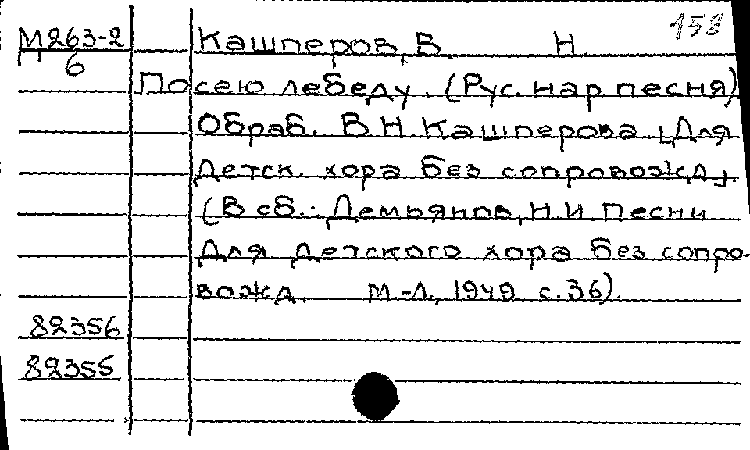 153
М263-2 Кашперов, В. Н.
6
Посею лебеду. (Рус. нар песня)
Обраб. В.Н. Кашперова. [Для
детск. хора без сопровожд.].
(В сб.: Демьянов, Н.И. Песни
для детского хора без сопро-
вожд. М-Л., 1949 с.36).
82356
82355